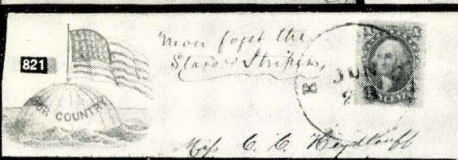 821
OUR COUNTRY
Never forget the
Stars & Stripes
JUN
Miss C. C.